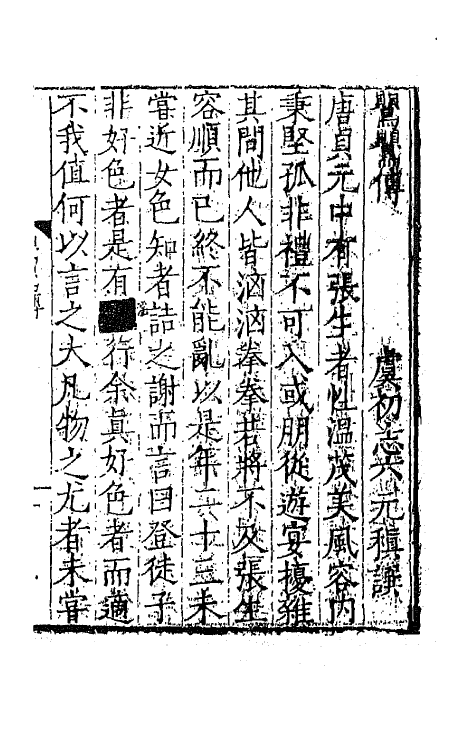 鶯鶯傳 虞初志六 元稹譔
唐貞元中有張生者性溫茂美風容內
秉堅孤非禮不可入或朋從遊宴擾雜
其間他人皆洶洶拳拳若將不及張生
容順而已終不能亂以是年二十三未
嘗近女色知者詰之謝而言曰登徒子
非好色者是有行余真好色者而適
不我值何以言之大凡物之尤者未嘗